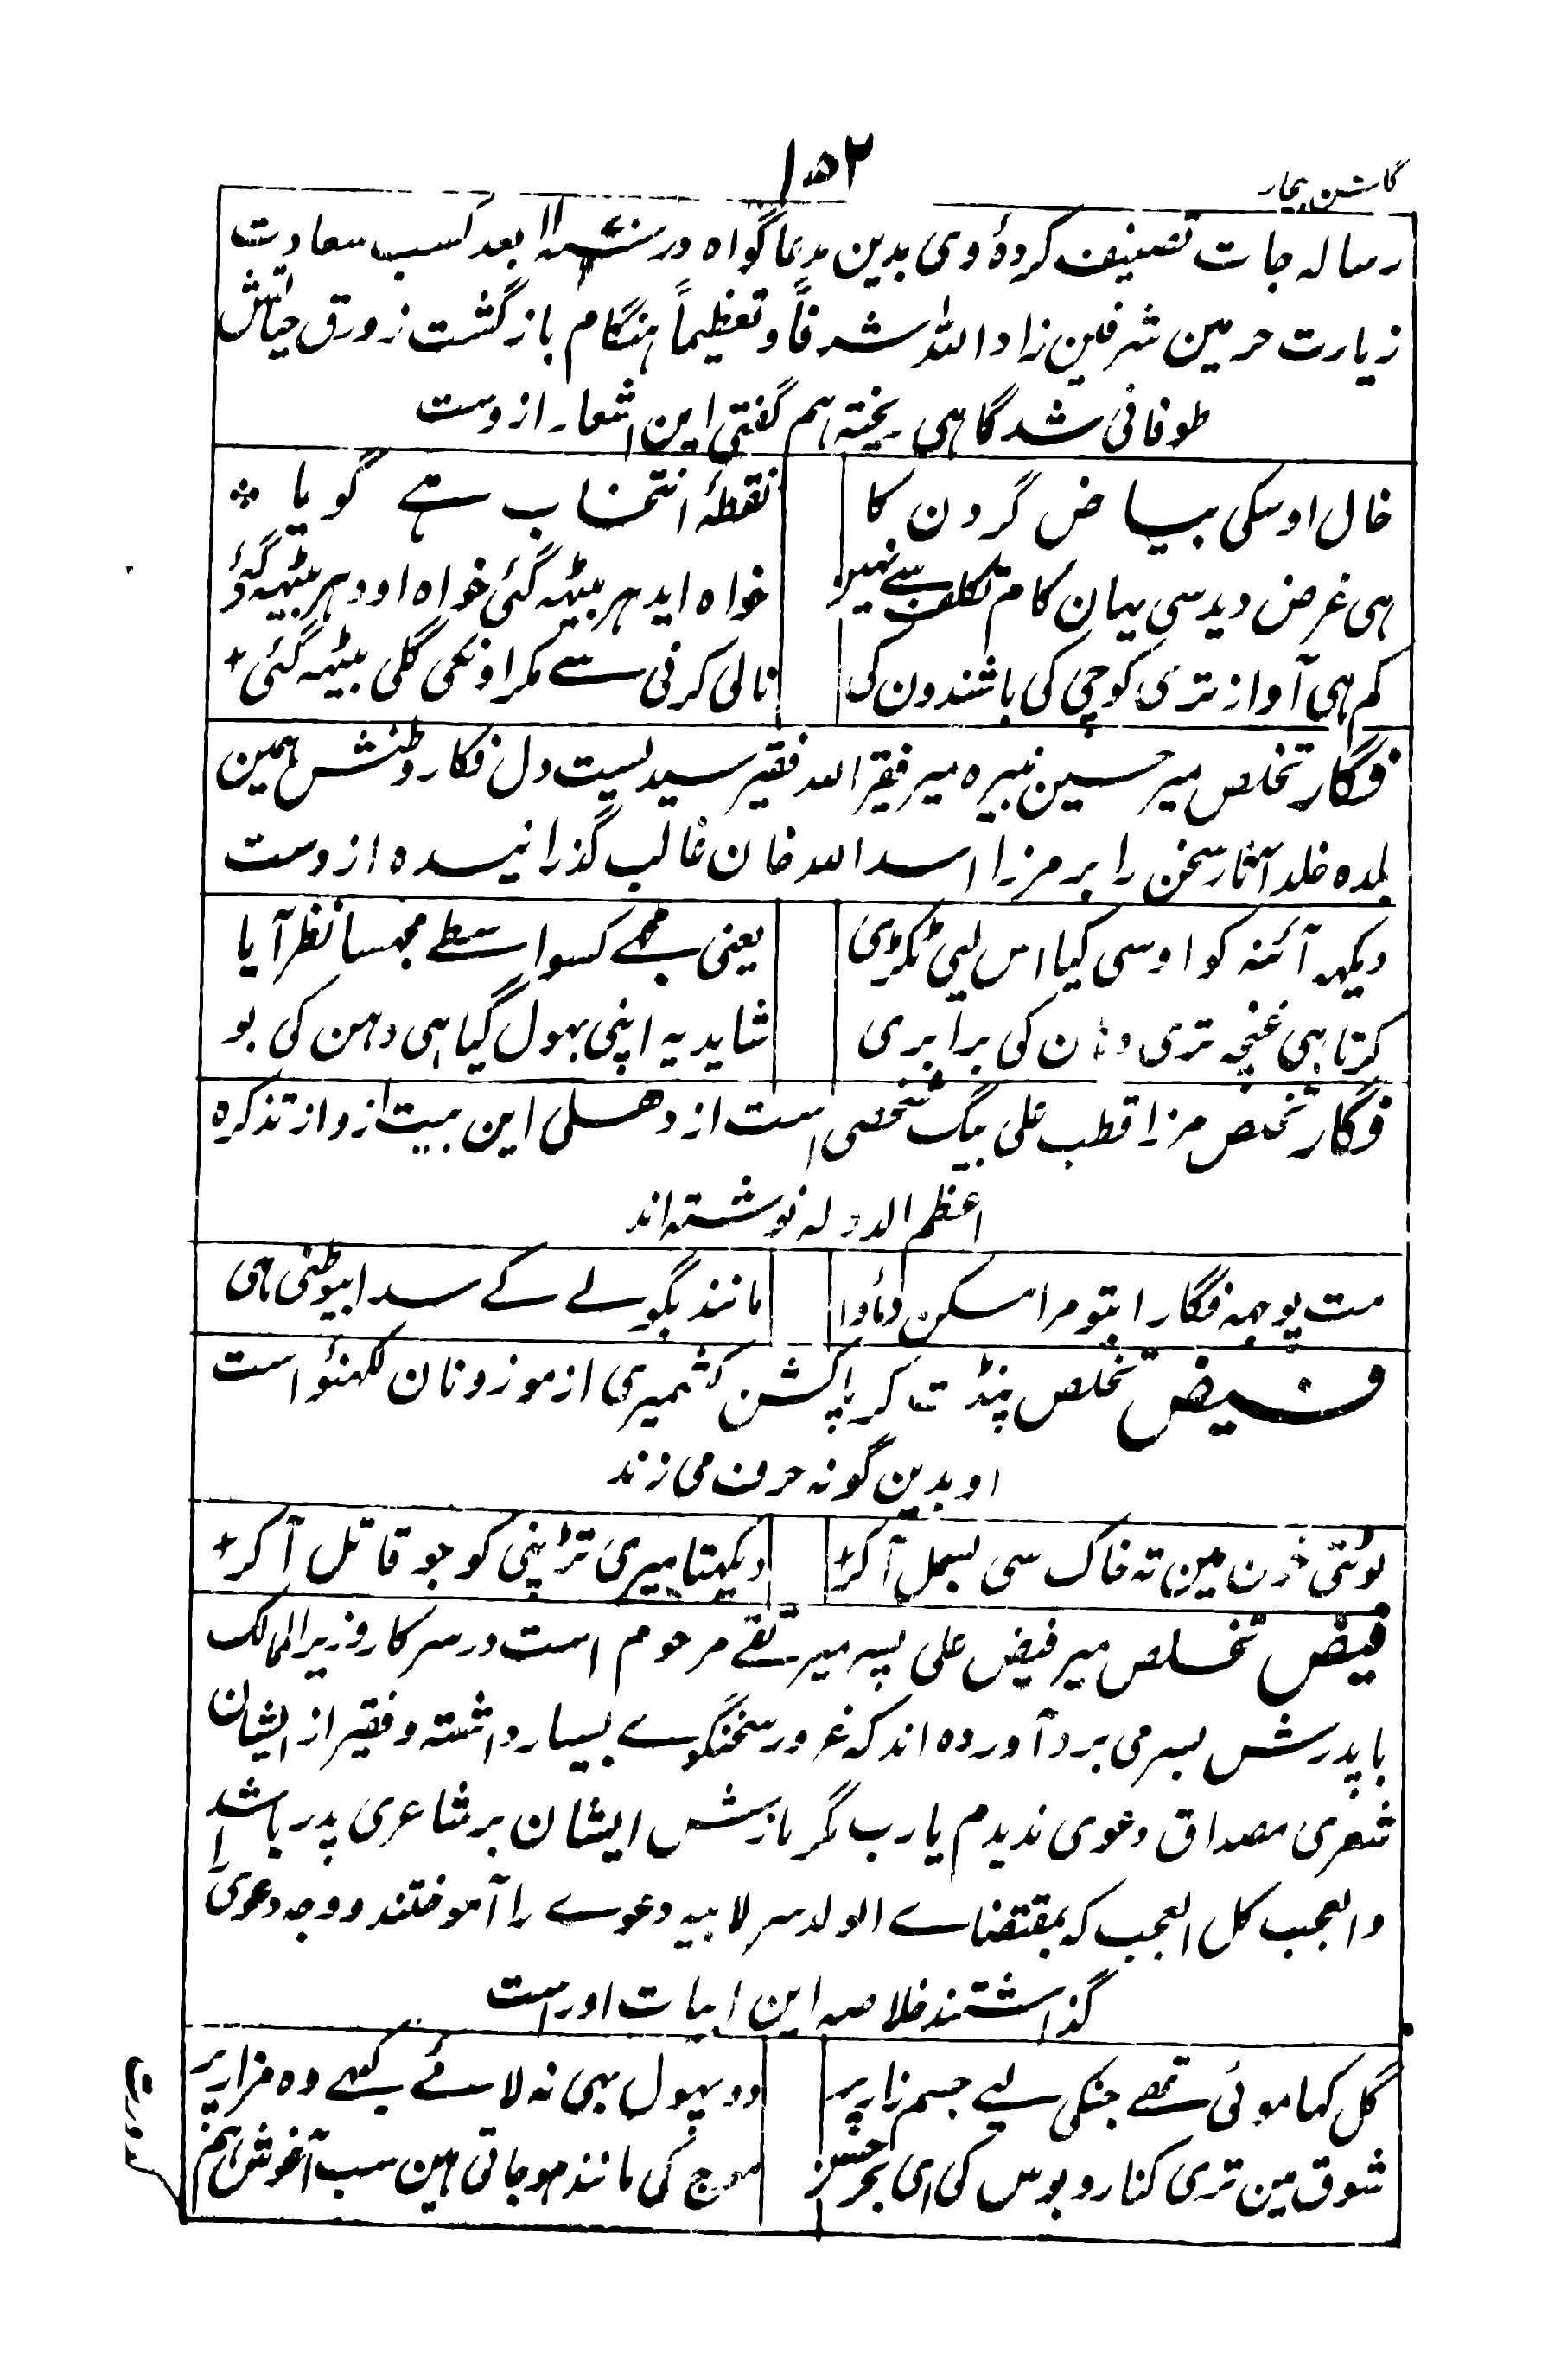 گلشن بیخار
۱۵۲
رسالہ جات تصنیف کردۂ وی بدین مدعا گواہ در بعد کسب سعادت
زیارت حرمین شرفین زاد اللہ شرفاً و تعظیماً ہنگام بازگشت زورق حیاتش
طوفانی شد گاہی ریختہ ہم گفتی این اشعار ازوست
خال اوسکی بیاض گردن کا نقطۂ انتخاب ہے گویا
ہی غرض دید سی یہان کام تکلف سے نہین خواہ ایدہر بیٹہہ گئی خواہ اودہر بیٹہہ گئی
کم ہی آواز تری کوچی کی باشندون کی نالی کرنی سے مگر اونکی گلی بیٹہہ گئی
فگار تخلص میر حسین نبیرہ میر فقیر اللہ فقیر سیدیست دل فگار وطنش ہمین
بلدہ خلد آثار سخن را بر مرزا اسد اللہ خان غالب گذرانیدہ ازوست
دیکہہ آئنہ کو اوسی کیا اس لیی ٹکڑی یعنی مجھے کسواسطے مجہسا نظر آیا
کرتا ہی غنچہ تری دہان کی برابری شاید یہ اپنی بہول گیا ہی دہن کی بو
فگار تخلص مرزا قطب علی بیگ شخصی است از دھلی این بیت ازو از تذکرہ
اعظم الدولہ نوشتہ اند
مت پوچہہ فگار ابتو مرا مسکن و ماوا مانند بگولے کے سدا بیوطنی ہی
فیض تخلص پنڈت کرپاکشن کشمیری از موزونان لکہنؤ است
او بدین گونہ حرف می زند
لوٹتی خون مین تہ خاک سی بسمل آکر دیکہتا میری تڑپنی کو جو قاتل آکر
فیض تخلص میر فیض علی پسر میر تقے مرحوم است در سرکار وزیر الممالک
با پدرش بسر می برد آوردہ اند کہ غرور سخنگوے بسیار داشتہ و فقیر از ایشان
شعری مصداق دعوی ندیدم یارب مگر نازش ایشان بر شاعری پدر باشد
والعجب کل العجب کہ بمقتضاے الولد سر لابیہ دعوے را آموختند و وجہ دعوی را
گذاشتند خلاصہ این ابیات اوراست
گل کہا موئی تھے جنکی لیے جسم زار پر دو پہول بہی نہ لائے کبھے وہ مزار پر
شوق مین تری کنار و بوس کی ای بحر حسن موج کی مانند ہو جاتی ہین سب آغوش ہم